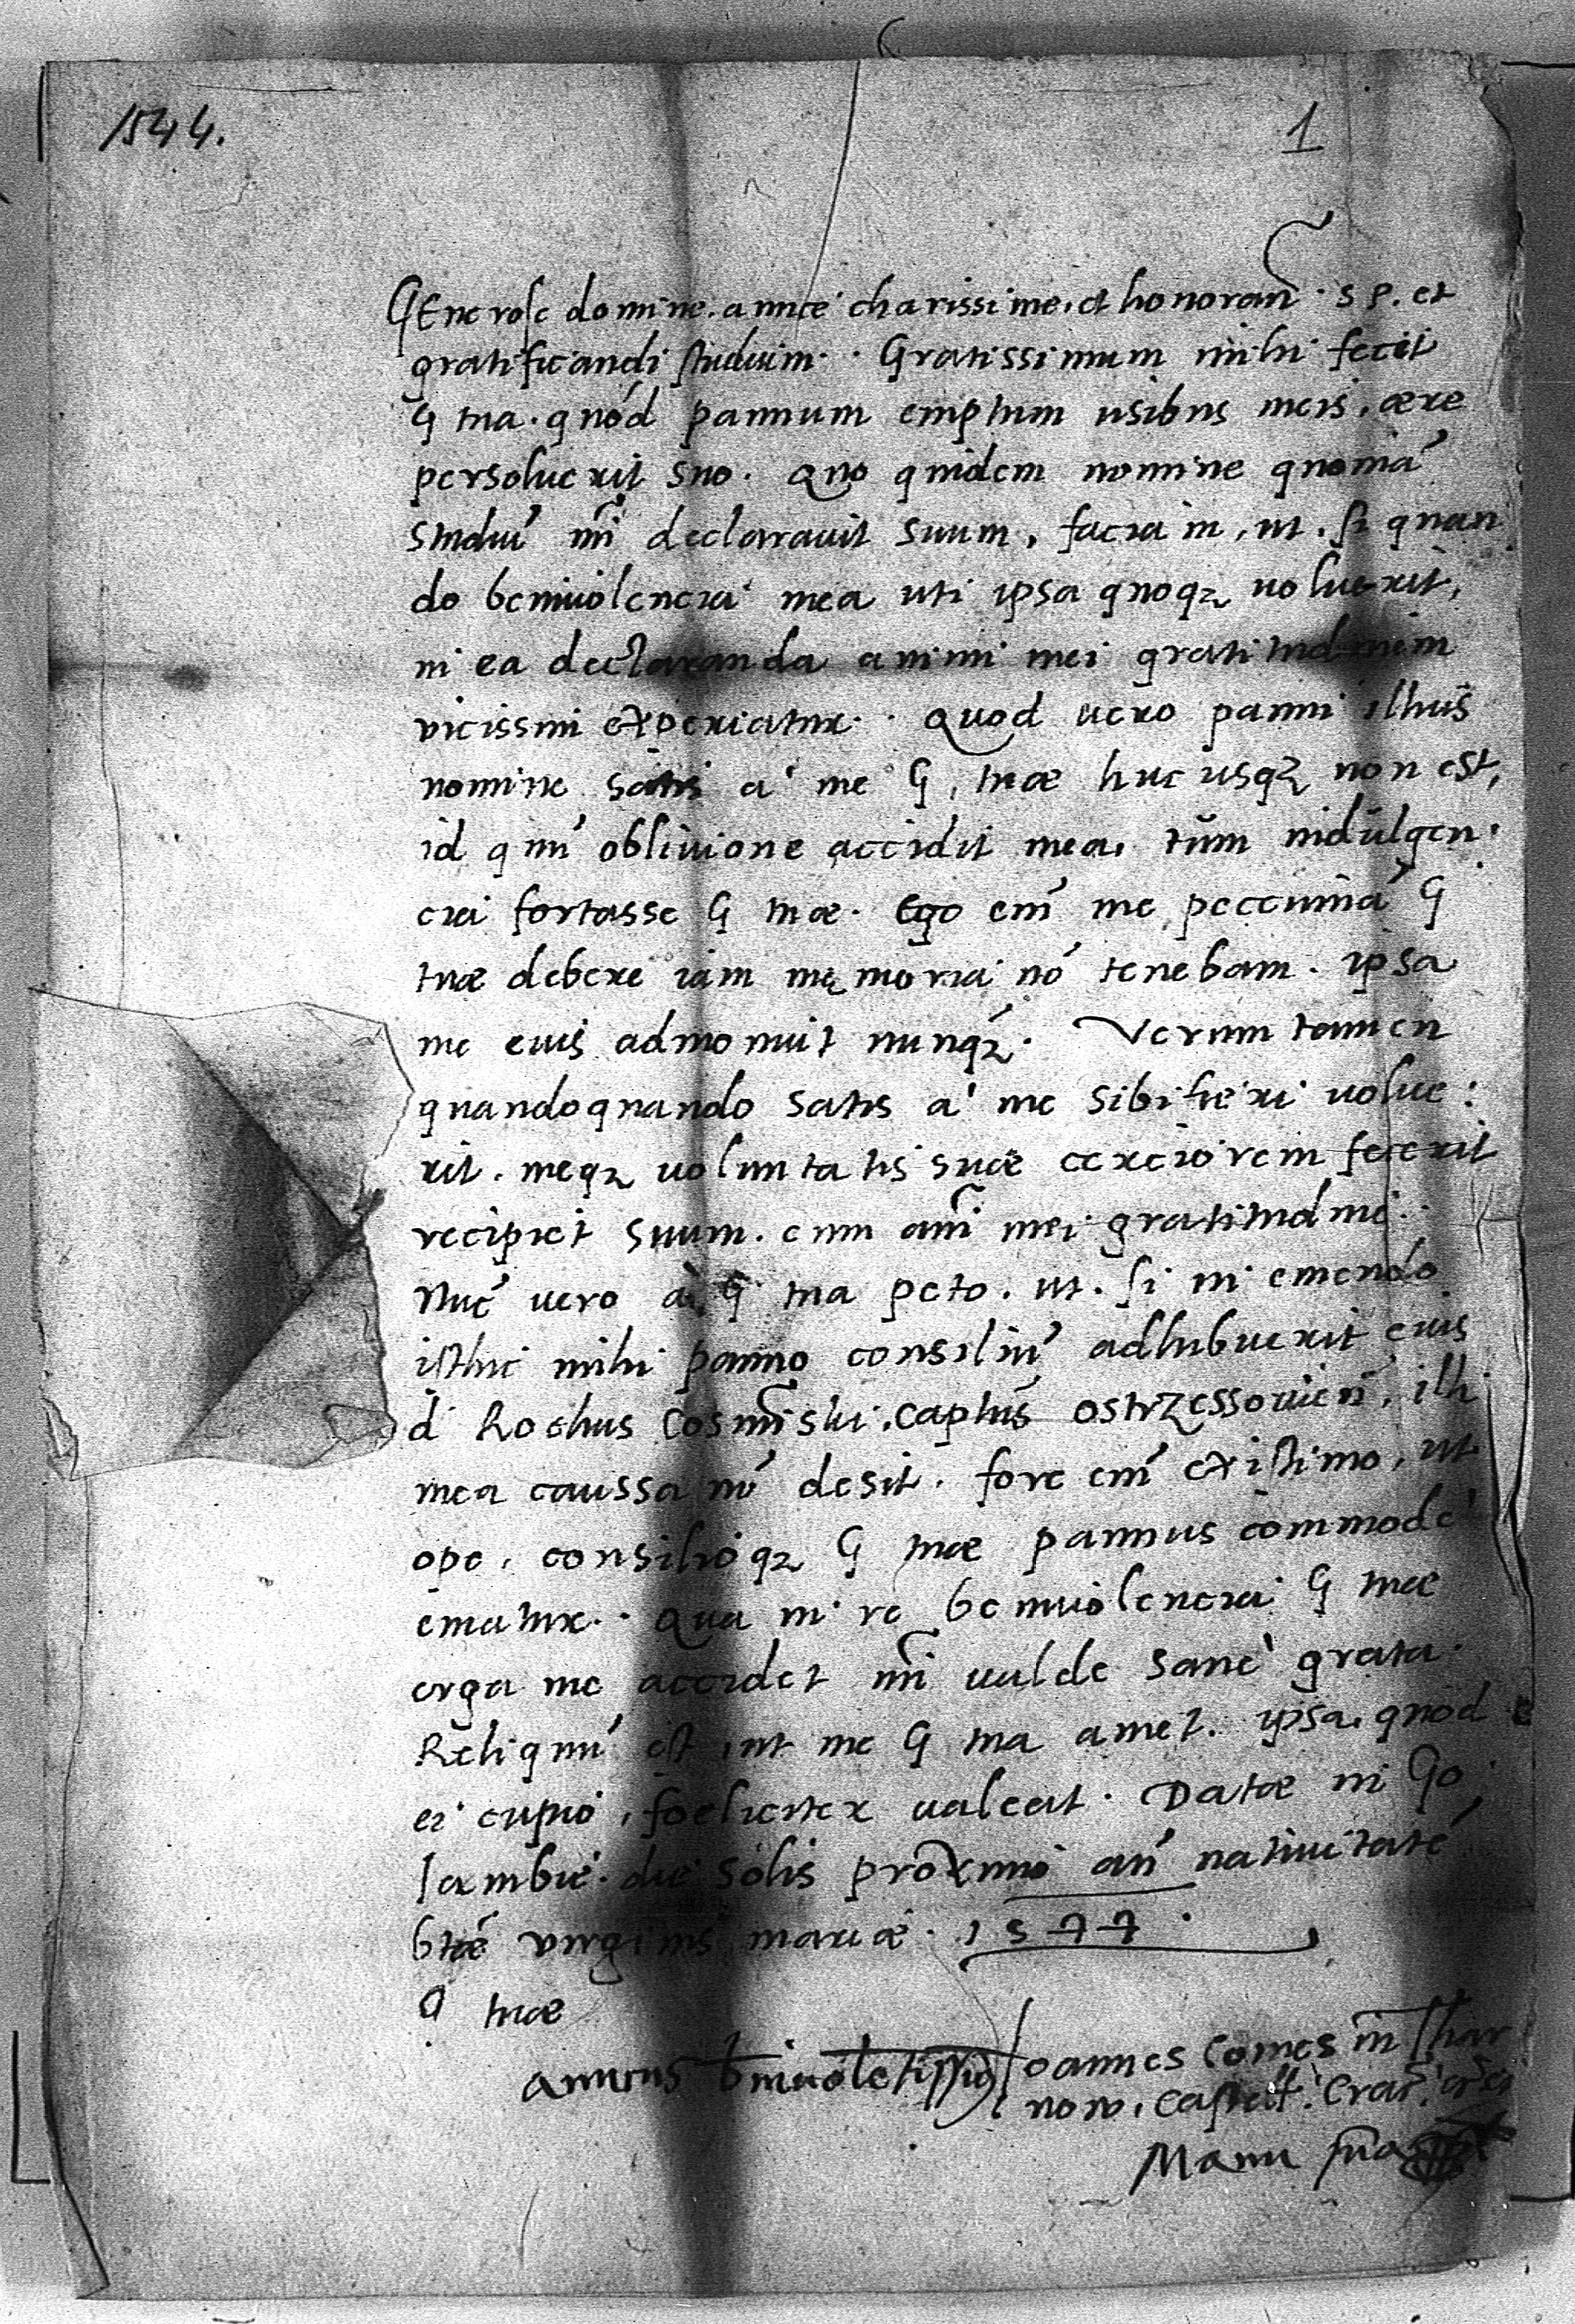 1544.
1
GEnerose domine. amice charissime. et honoran̄. S P. et
gratificandi studium. Gratissimum mihi fecit
G tua. quód pannum emptum usibus meis, aere
persoluerit suo. Quo quidem nomine quoniā
studiū mī declarauit suum, faciam, ut, si quan
do beniuolencia mea uti ipsa quoqz uoluerit,
in ea declaranda animi mei gratitudinem
vicissim experiatur. Quod uero panni illius
nomine satis a' me G, tuae huc usqz non est,
id cum obliuione accidit mea, tum indulgen
cia fortasse G tuae. Ego em̄ me peccuniā G
tuae debere iam memoria nō tenebam. ipsa
me eius admonuit nunqz. Verum tamen
quandoquando satis a' me sibi fieri uolue:
rit. meqz uoluntatis suae cerciorem fecerit
recipiet suum. cum anī mei gratitudine.
Nūc uero à G tua peto. ut. si in emendo
isthic mihi panno consiliū adhibuerit eius
d Rochus Cosmīski. captus ostrzessouien̄, illi
mea caussa nō desit. fore em̄ existimo, ut
ope, consilioqz G tuae pannus commode
ematur. Qua in re beniuolencia G tuae
erga me accidet mī ualde sanè grata.
Reliquū est, ut me G tua amet. ipsa, quód
ei cupio, foeliciter ualeat. Datae in Go
lambie. die Solis proximo an̄ natiuitatē
btae virginis mariae. 1544.
G tuae
amicus bniuolētissiq Ioannes Comes in Thar
now, Castell. Crac.
Manu sua